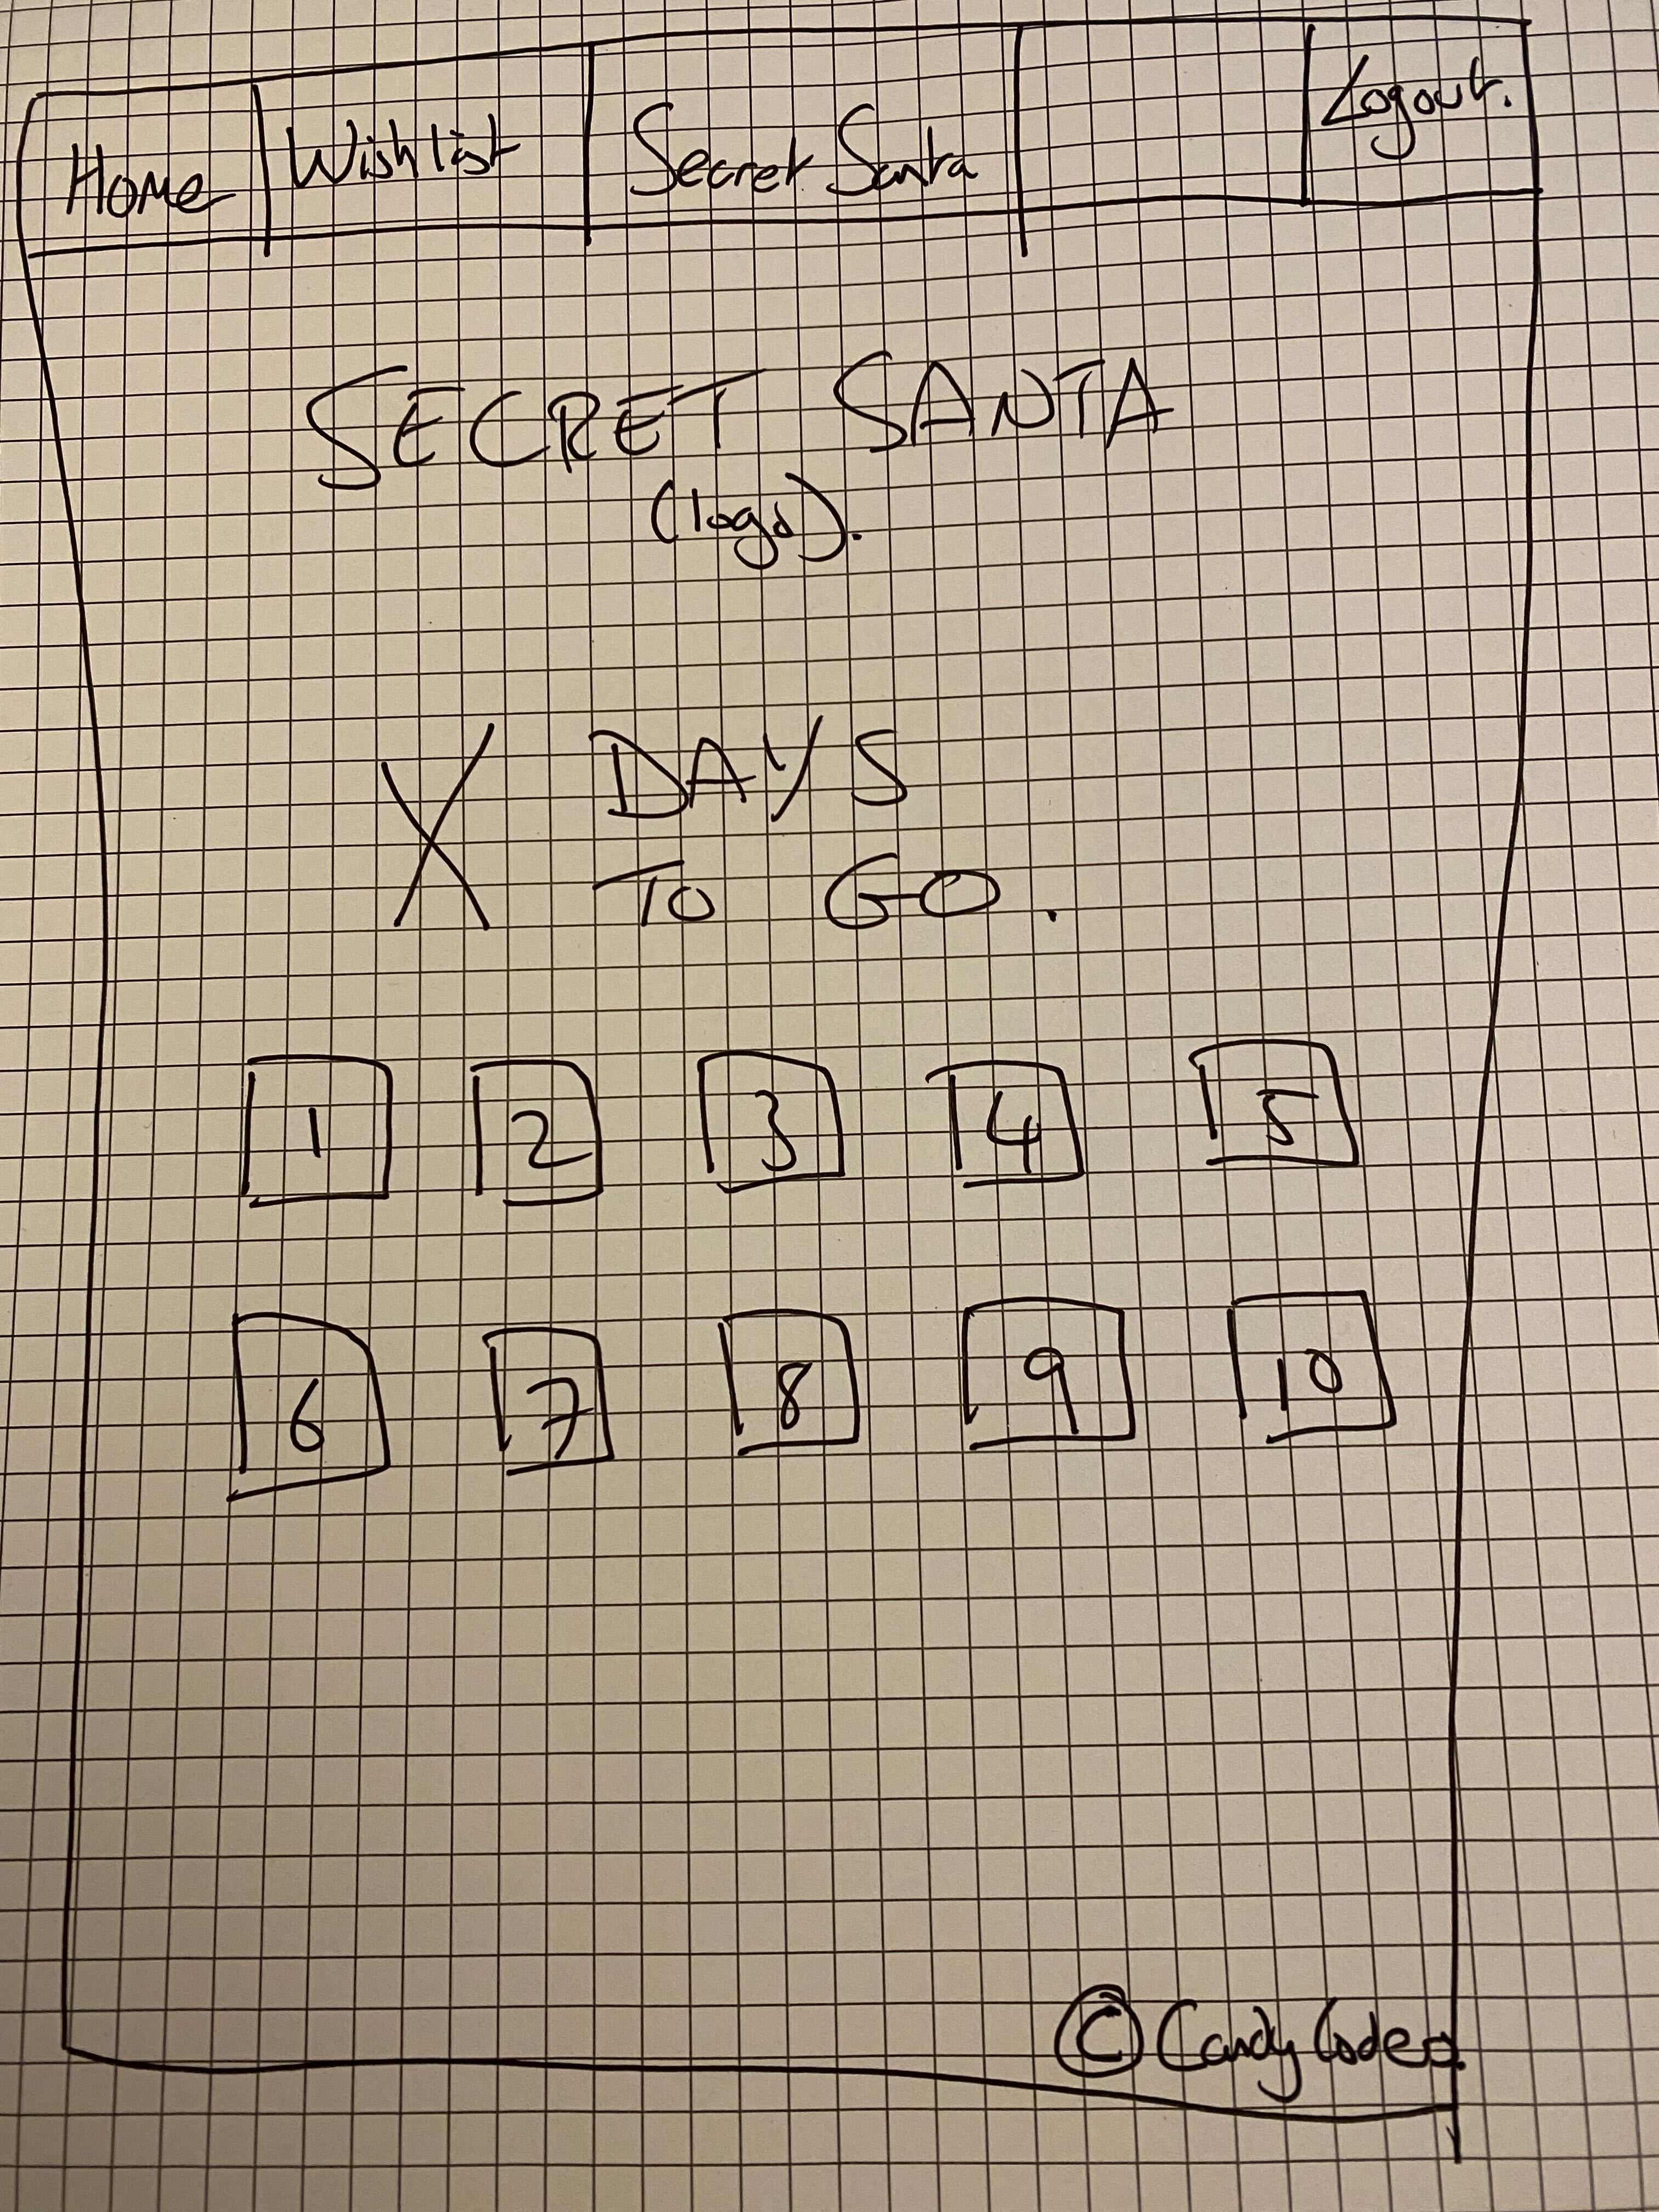 Home Wishlist Secret Santa Logout.
SECRET SANTA
(logo).
X DAYS
TO GO.
1 2 3 4 5
6 7 8 9 10
© Candy Coders